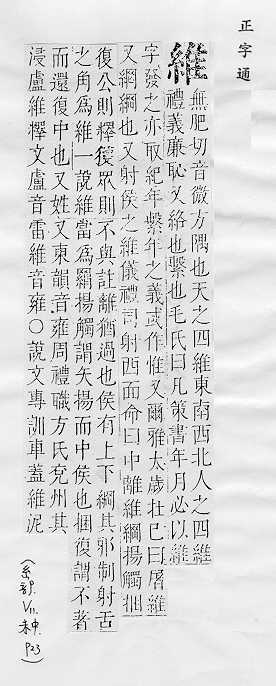 正字通
維
無肥切音微方隅也天之四維東南西北人之四維
禮義廉恥又絡也繫也毛氏曰凡策書年月必以維
字發之亦取紀年繫年之義或作惟又爾雅太歲在巳曰屠維
又綱綱也又射侯之維儀禮司射西面命曰中離維綱揚觸捆
復公則釋獲眾則不與註離猶過也侯有上下綱其邪制射舌
之角爲維一說維當爲羂揚觸謂矢揚而中侯也捆復謂不著
而還復中也又姓又東韻音雍周禮職方氏兗州其
浸盧維釋文盧音雷維音雍○說文專訓車蓋維泥
(糸部. V11. 未中. P23)